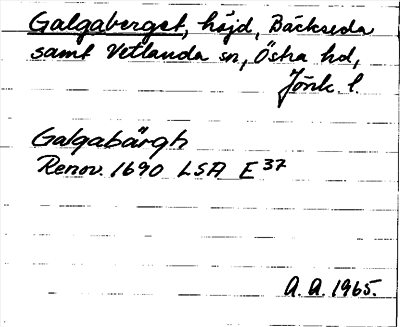 Galgaberget, höjd, Bäckseda
samt Vetlanda sn, Östra hd,
Jönk. l.
Galgabärgh
Renov. 1690 LSA E 37
A. A. 1965.